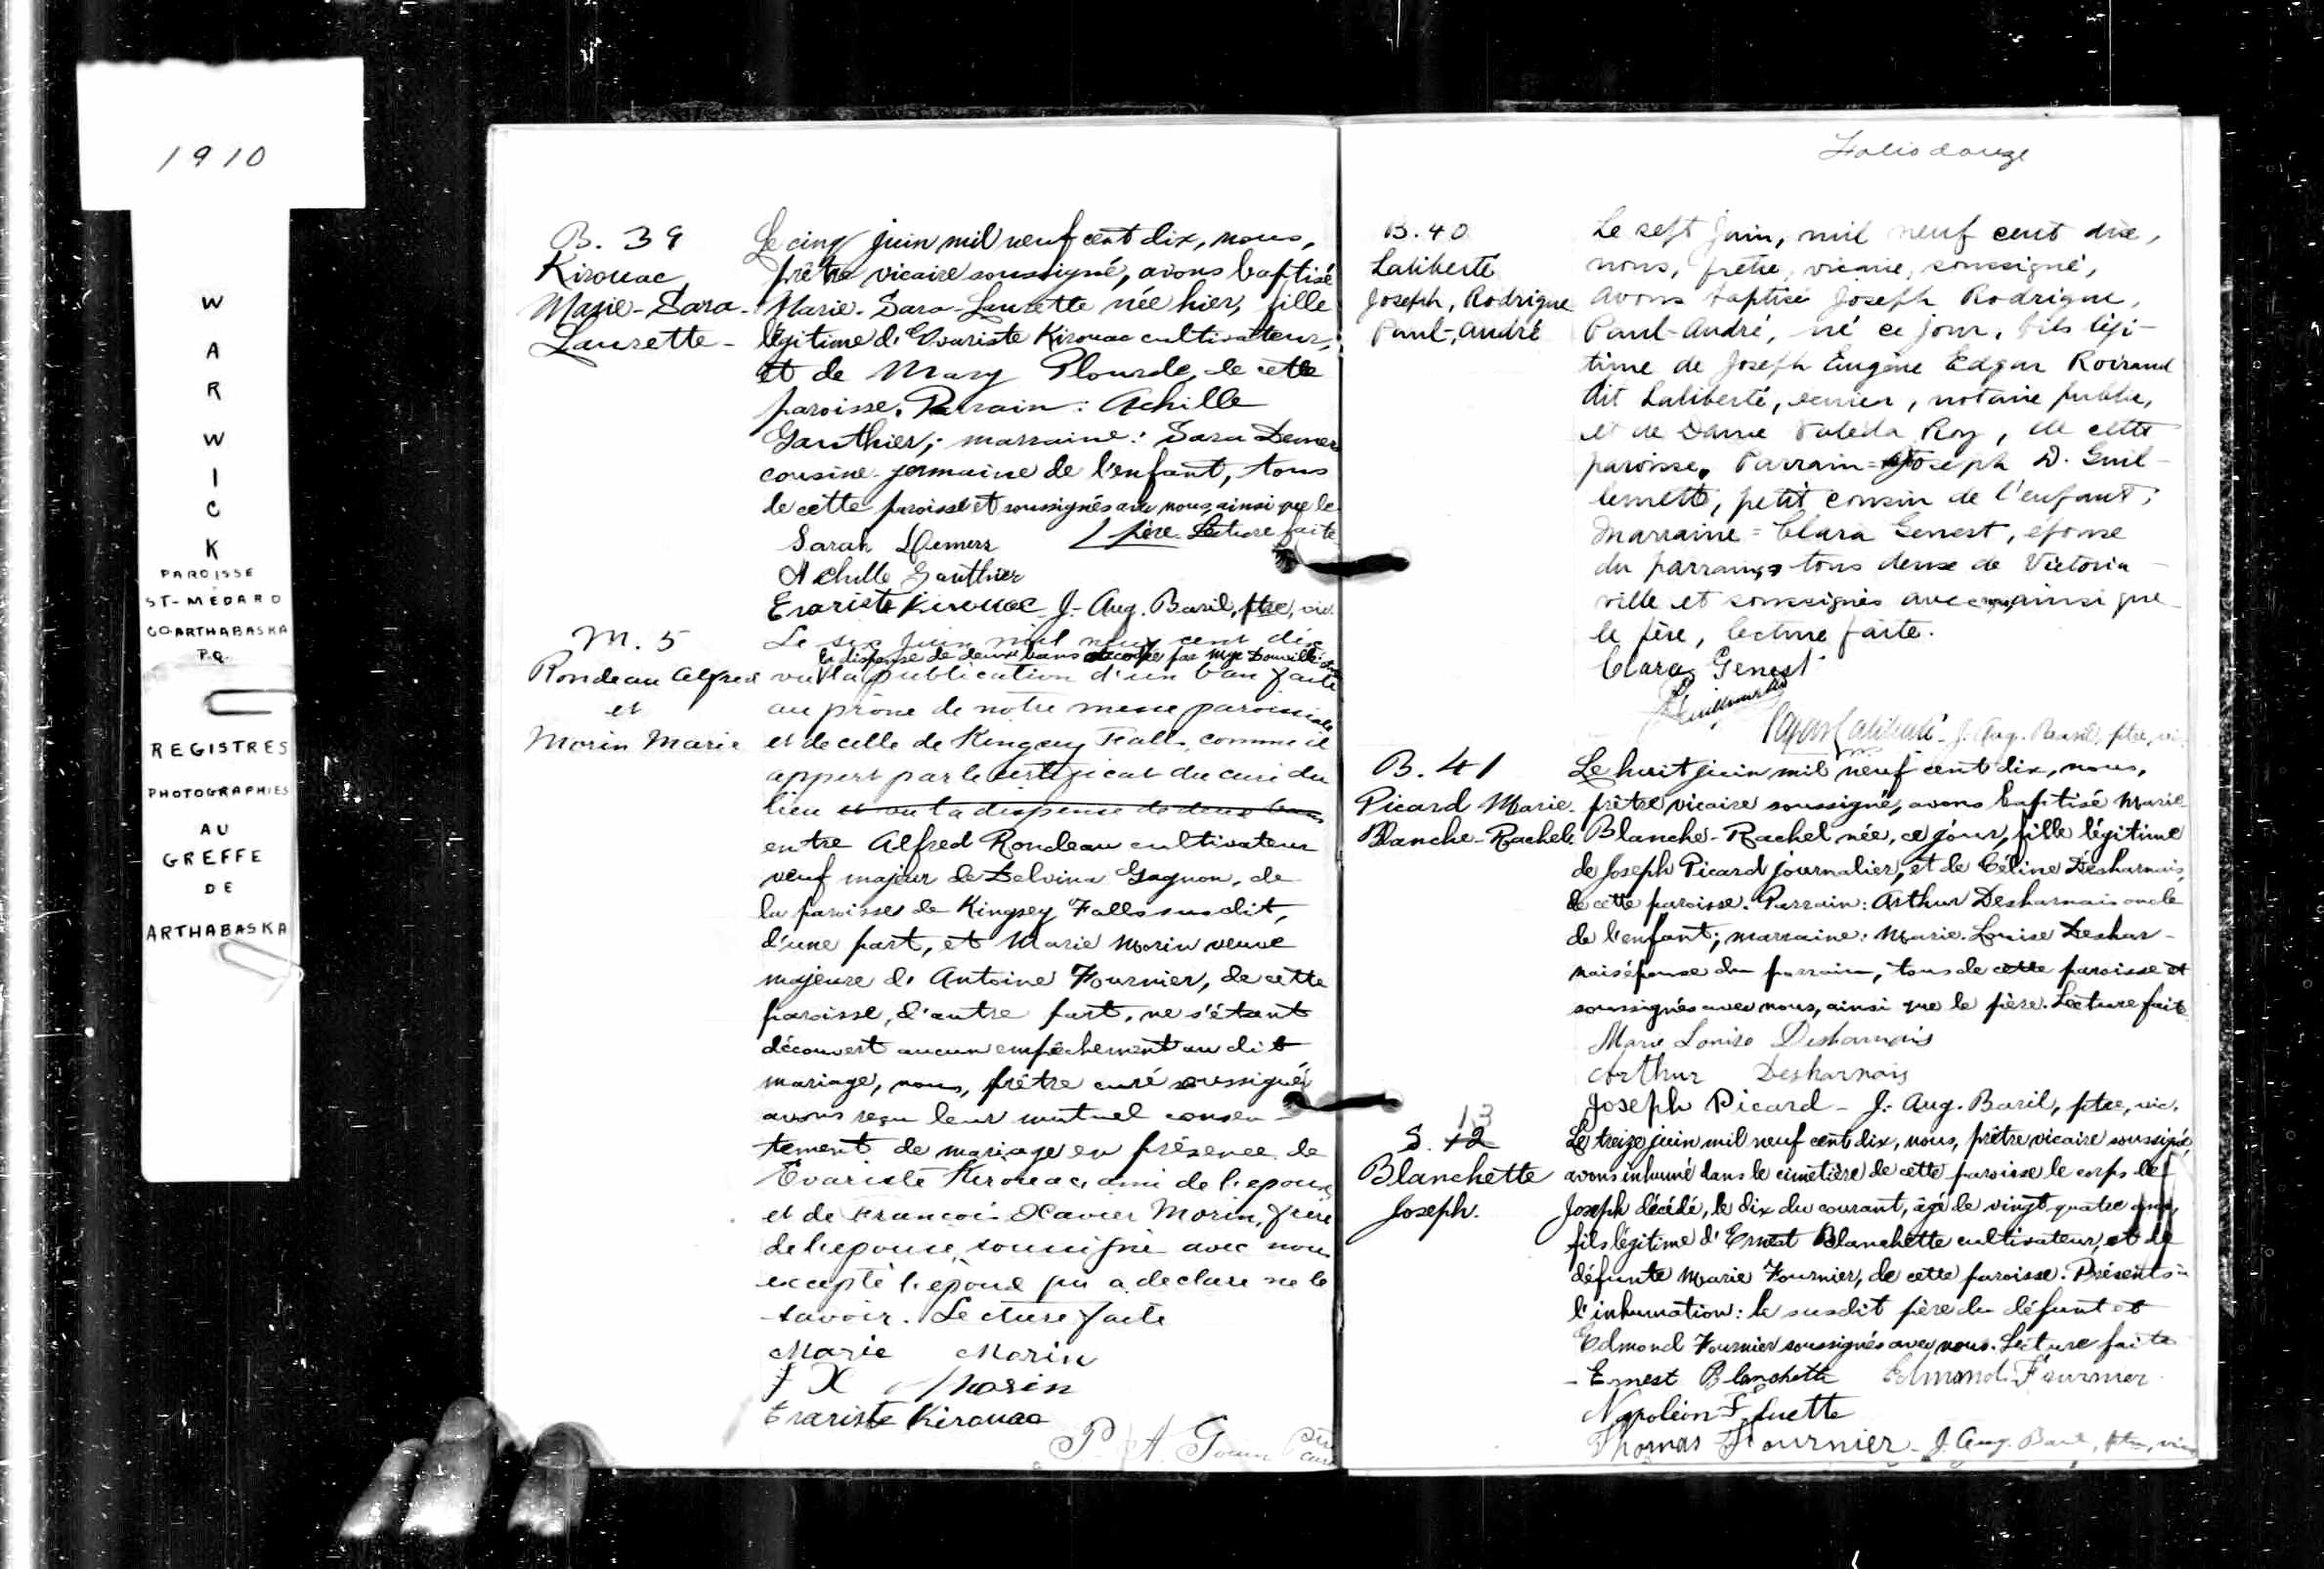 1910
W
A
R
W
I
C
K
PAROISSE
ST-MÉDARD
CO-ARTHABASKA
P.Q.
REGISTRES
PHOTOGRAPHIES
AU
GREFFE
DE
ARTHABASKA
B. 39
Kirouac
Marie-Sara-
Laurette-
Le cinq juin mil neuf cent dix, nous,
prêtre vicaire soussigné, avons baptisé
Marie-Sara-Laurette née hier, fille
légitime d'Evariste Kirouac cultivateur,
et de Mary Plourde, de cette
paroisse. Parrain: Achille
Gauthier; marraine: Sara Demers
cousine-germaine de l'enfant, tous
de cette paroisse et soussignés avec nous, ainsi que le
père. Lecture faite
Sarah Demers
Achille Gauthier
Evariste Kirouac J.-Aug. Baril, ptre, vic.
M. 5
Rondeau Alfred
et
Morin Marie
Le six juin mil neuf cent dix
la dispense de deux bans accordée par Mgr
vu la publication d'un ban faite
au prône de notre messe paroissiale
et de celle de Kingsey Falls comme il
appert par le certificat du curé du
lieu et vu la dispense de deux bans
entre Alfred Rondeau cultivateur
veuf majeur de Delvina Gagnon, de
la paroisse de Kingsey Falls susdit,
d'une part, et Marie Morin veuve
majeure d'Antoine Fournier, de cette
paroisse, d'autre part, ne s'étant
découvert aucun empêchement au dit
mariage, nous, prêtre curé soussigné,
avons reçu leur mutuel consen-
tement de mariage en présence de
Evariste Kirouac, ami de l'epoux
et de Francois Xavier Morin, frère
de l'epouse, soussigné avec nous
excepté l'époux qui a declare ne le
savoir. Lecture faite
Marie Morin
F X Morin
Evariste Kirouac
P. A. Gouin Ptre
curé
Folio douze
B. 40
Laliberté
Joseph, Rodrigue
Paul-André
Le sept juin, mil neuf cent dix,
nous, prêtre, vicaire, soussigné,
avons baptisé Joseph Rodrigue,
Paul-André, né ce jour, fils légi-
time de Joseph Eugène Edgar Roirand
dit Laliberté, écuier, notaire public,
et de Dame Valéda Roy, de cette
paroisse. Parrain = Joseph D. Guil-
lemette, petit cousin de l'enfant;
Marraine = Clara Genest, épouse
du parrain, tous deux de Victoria-
ville et soussignés avec nous, ainsi que
le père, lecture faite.
Clara Genest
Laliberté J. Aug. Baril, ptre, vic.
B. 41
Picard Marie-
Blanche-Rachel.
Le huit juin mil neuf cent dix, nous,
prêtre vicaire soussigné, avons baptisé Marie-
Blanche-Rachel née, ce jour, fille légitime
de Joseph Picard journalier, et de Céline Desharnais,
de cette paroisse. Parrain: Arthur Desharnais oncle
de l'enfant; marraine: Marie-Louise Deshar-
nais épouse du parrain, tous de cette paroisse et
soussignés avec nous, ainsi que le père. Lecture faite
Marie Louise Desharnais
Arthur Desharnais
Joseph Picard - J.-Aug. Baril, ptre, vic.
13
S. 12
Blanchette
Joseph.
Le treize juin mil neuf cent dix, nous, prêtre vicaire soussigné,
avons inhumé dans le cimetière de cette paroisse le corps de
Joseph décédé, le dix du courant, âgé de vingt-quatre ans,
fils légitime d'Ernest Blanchette cultivateur, et de
défunte Marie Fournier, de cette paroisse. Présents à
l'inhumation: le susdit père du défunt et
Edmond Fournier soussignés avec nous. Lecture faite
- Ernest Blanchette Edmond Fournier
Napoléon Luette
Thomas Fournier - J. Aug. Baril, ptre, vic.